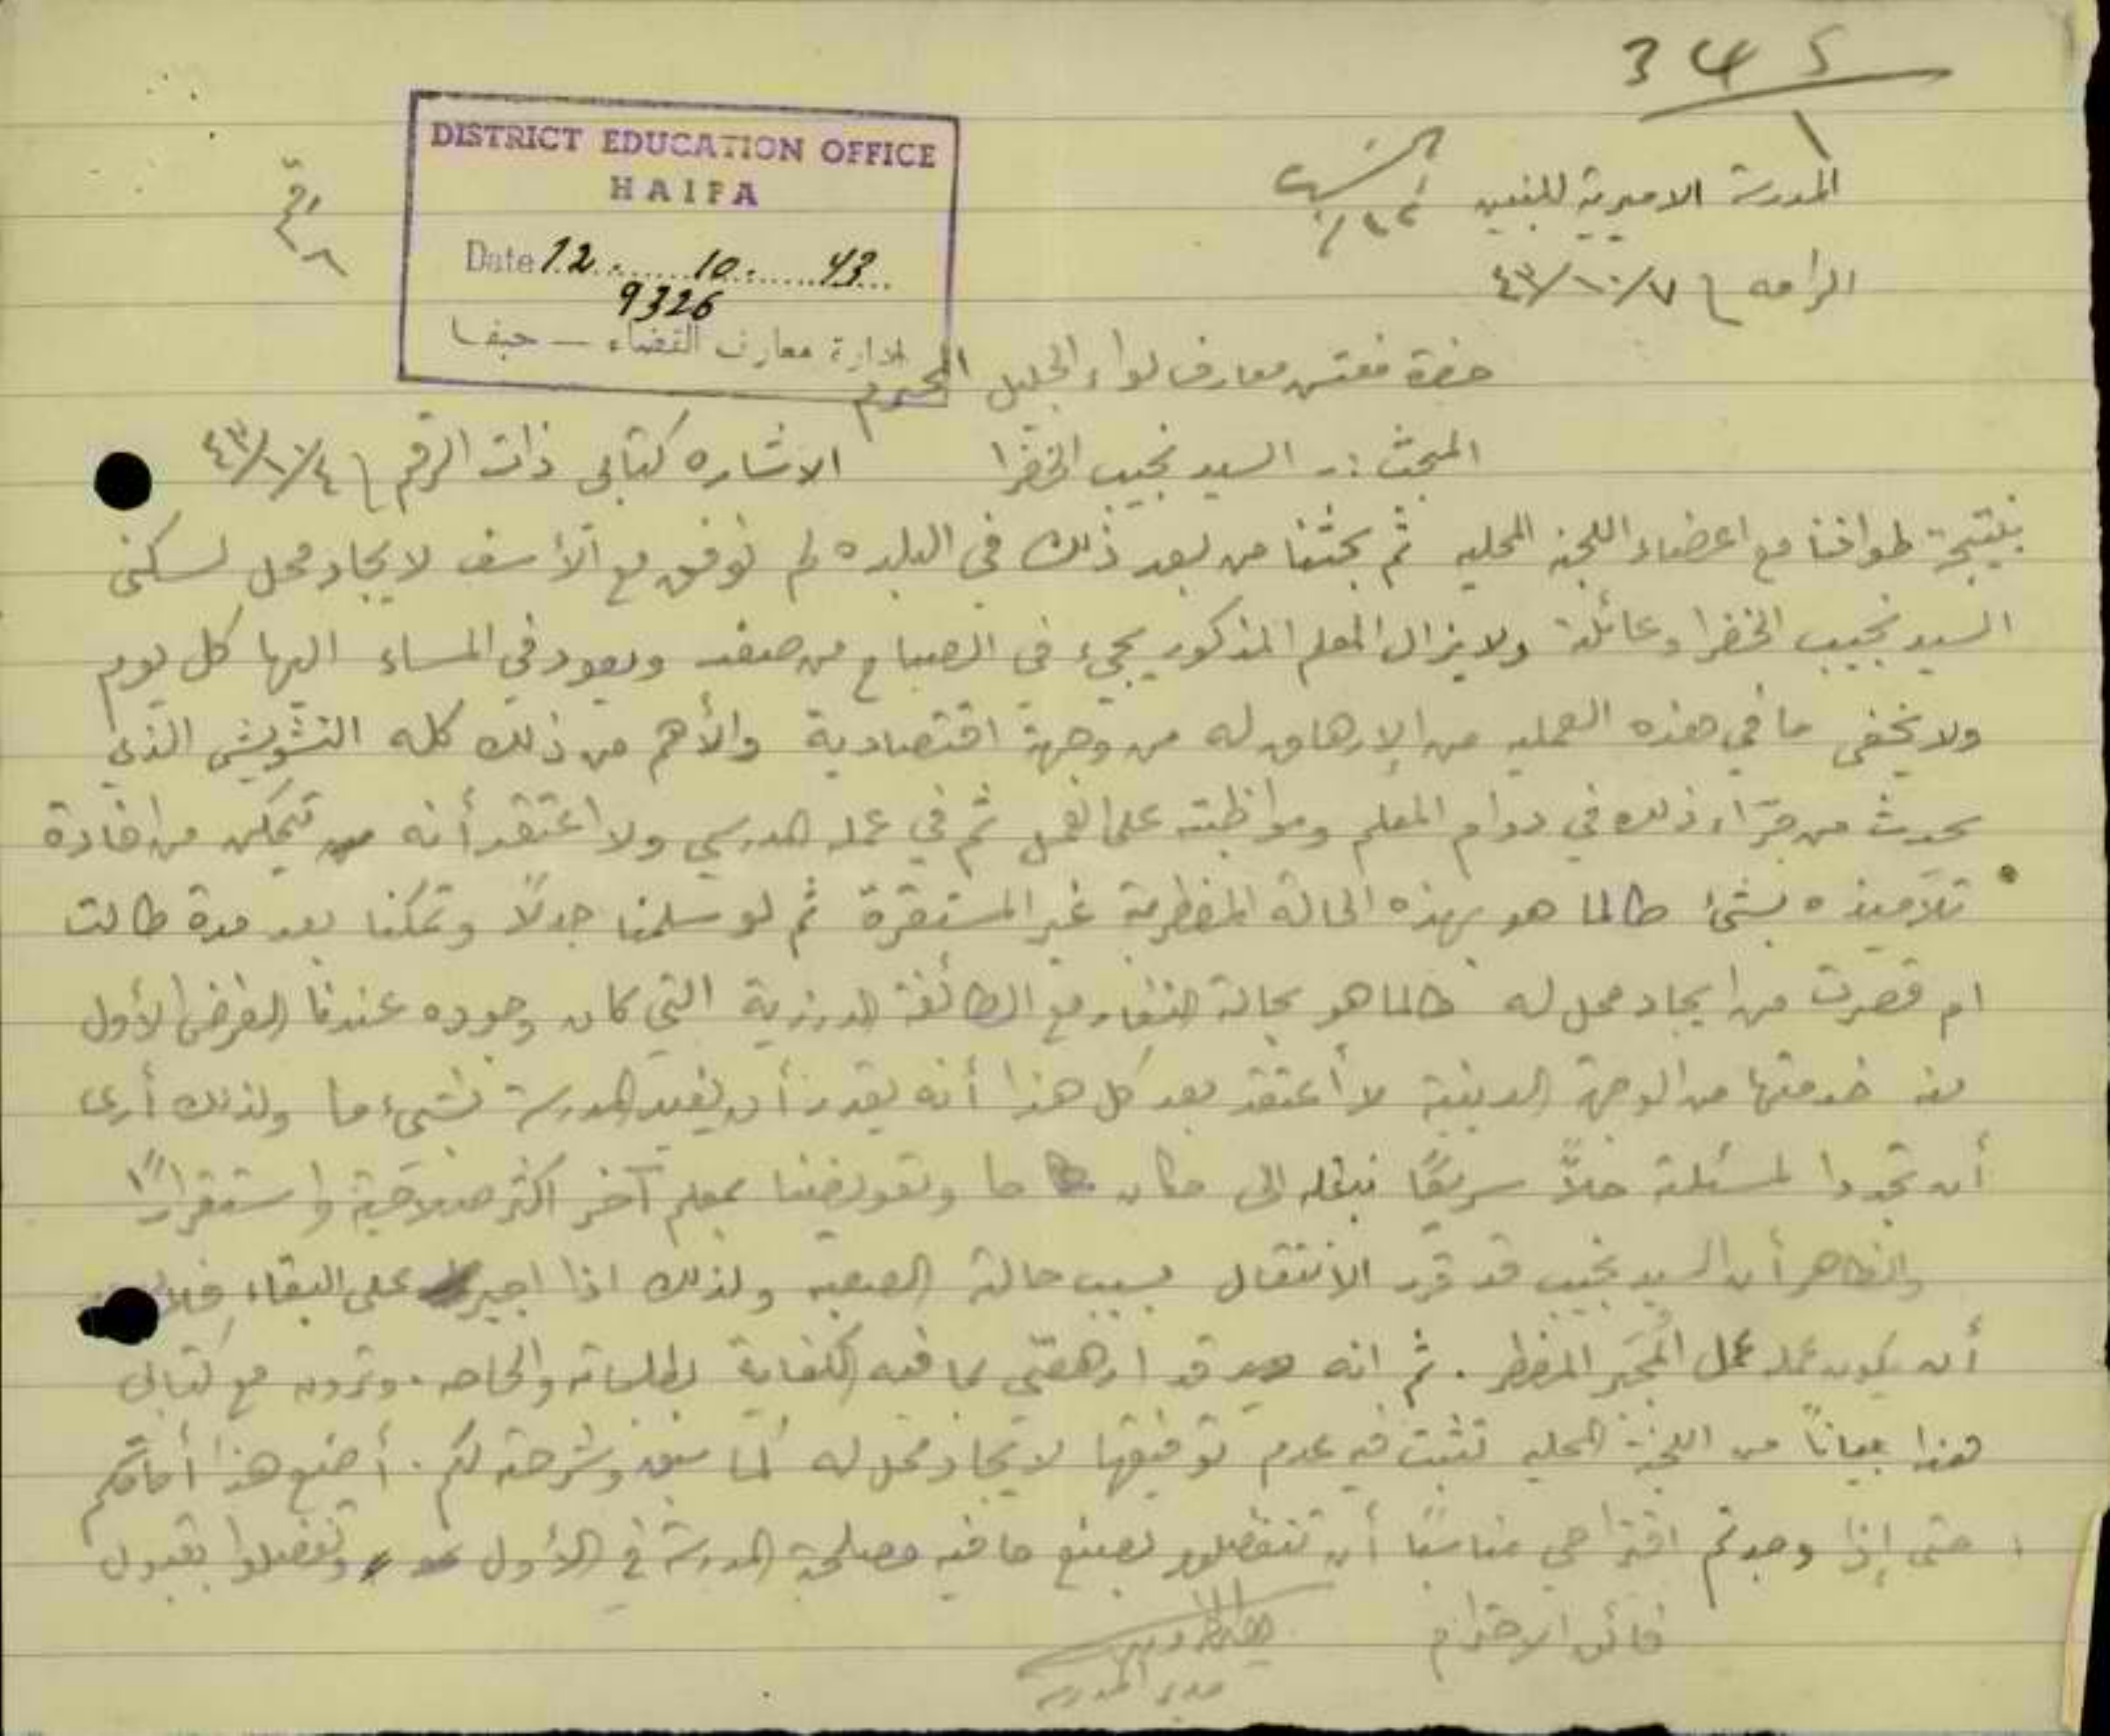 345
DISTRICT EDUCATION OFFICE
HAIFA
Date 12. 10. 43
9326
لادارة معارف القضاء — حيفا
المدرسة الاميرية للبنين
الرامه ٧/١٠/٤٣
حضرة مفتش معارف لواء الجليل المحترم
المبحث :- السيد نجيب الخضرا الاشاره كتابي ذات الرقم ٤/١٠/٤٣
نتيجة طوافنا مع اعضاء اللجنه المحليه ثم بحثنا من بعد ذلك في البلده لم نوفق مع الأسف لايجاد محل لسكنى
السيد نجيب الخضرا وعائلته ولا يزال المعلم المذكور يجيء في الصباح من صفد ويعود في المساء اليها كل يوم
ولا يخفى ما في هذه العمليه من الإرهاق له من وجهة اقتصادية والأهم من ذلك كله التشويش الذي
يحدث من جرّاء ذلك في دوام المعلم ومواظبته على العمل ثم في عمله المدرسي ولا اعتقد أنه يتمكن من افادة
تلاميذه بشئ طالما هو بهذه الحالة المضطربة غير المستقرة ثم لو سلمنا جدلاً وتمكنا بعد مدة طالت
ام قصرت من ايجاد محل له طالما هو بحالة تنفار مع الطائفة الدرزية التي كان وجوده عندنا الغرض الأول
منه خدمتها من الوجهة الدينية لا أعتقد بعد كل هذا أنه يقدر أن يفيد المدرسة بشيء ما ولذلك أرى
أن تجدوا لمسئلته حلاً سريعًا بنقله الى مكان ما وتعويضنا بمعلم آخر اكثر صلاحية واستقرارًا
والظاهر أن السيد نجيب قد قرر الانتقال بسبب حالته الصعبه ولذلك اذا اجبر على البقاء
أن يكون عمله عمل المُجبَر المضطر . ثم انه قد ارهقني بما فيه الكفاية بطلباته والحاحه . وترون مع كتابي
هذا بيانًا من اللجنة المحليه تثبت فيه عدم توفيقها لايجاد محل له كما سبق وشرحته لكم . أضع هذا أمامكم
حتى إذا وجدتم اقتراحي مناسبًا أن تتفضلوا بصنع ما فيه مصلحة المدرسة في الأول وتفضلوا بقبول
فائق الاحترام
مدير المدرسه